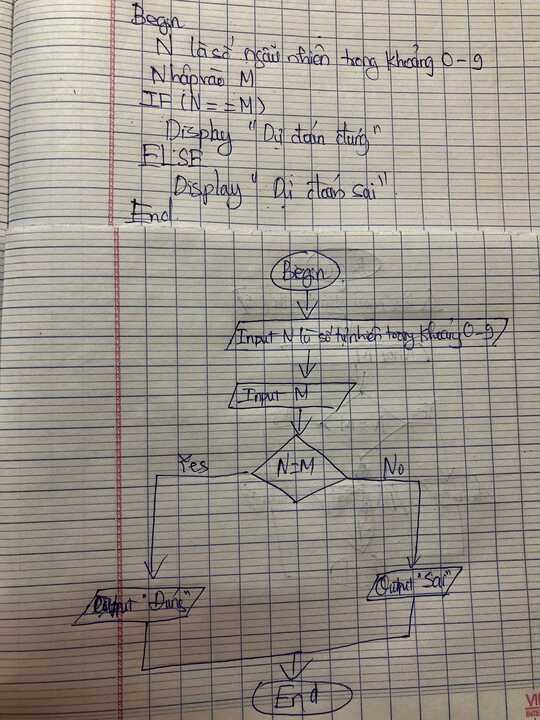 Begin
N là số ngẫu nhiên trong khoảng 0-9
Nhập vào M
IF (N==M)
Display "Dự đoán đúng"
ELSE
Display "Dự đoán sai"
End
Begin
Input N là số tự nhiên trong khoảng 0-9
Input M
N=M
Yes
No
Output "Sai"
Output "Đúng"
End